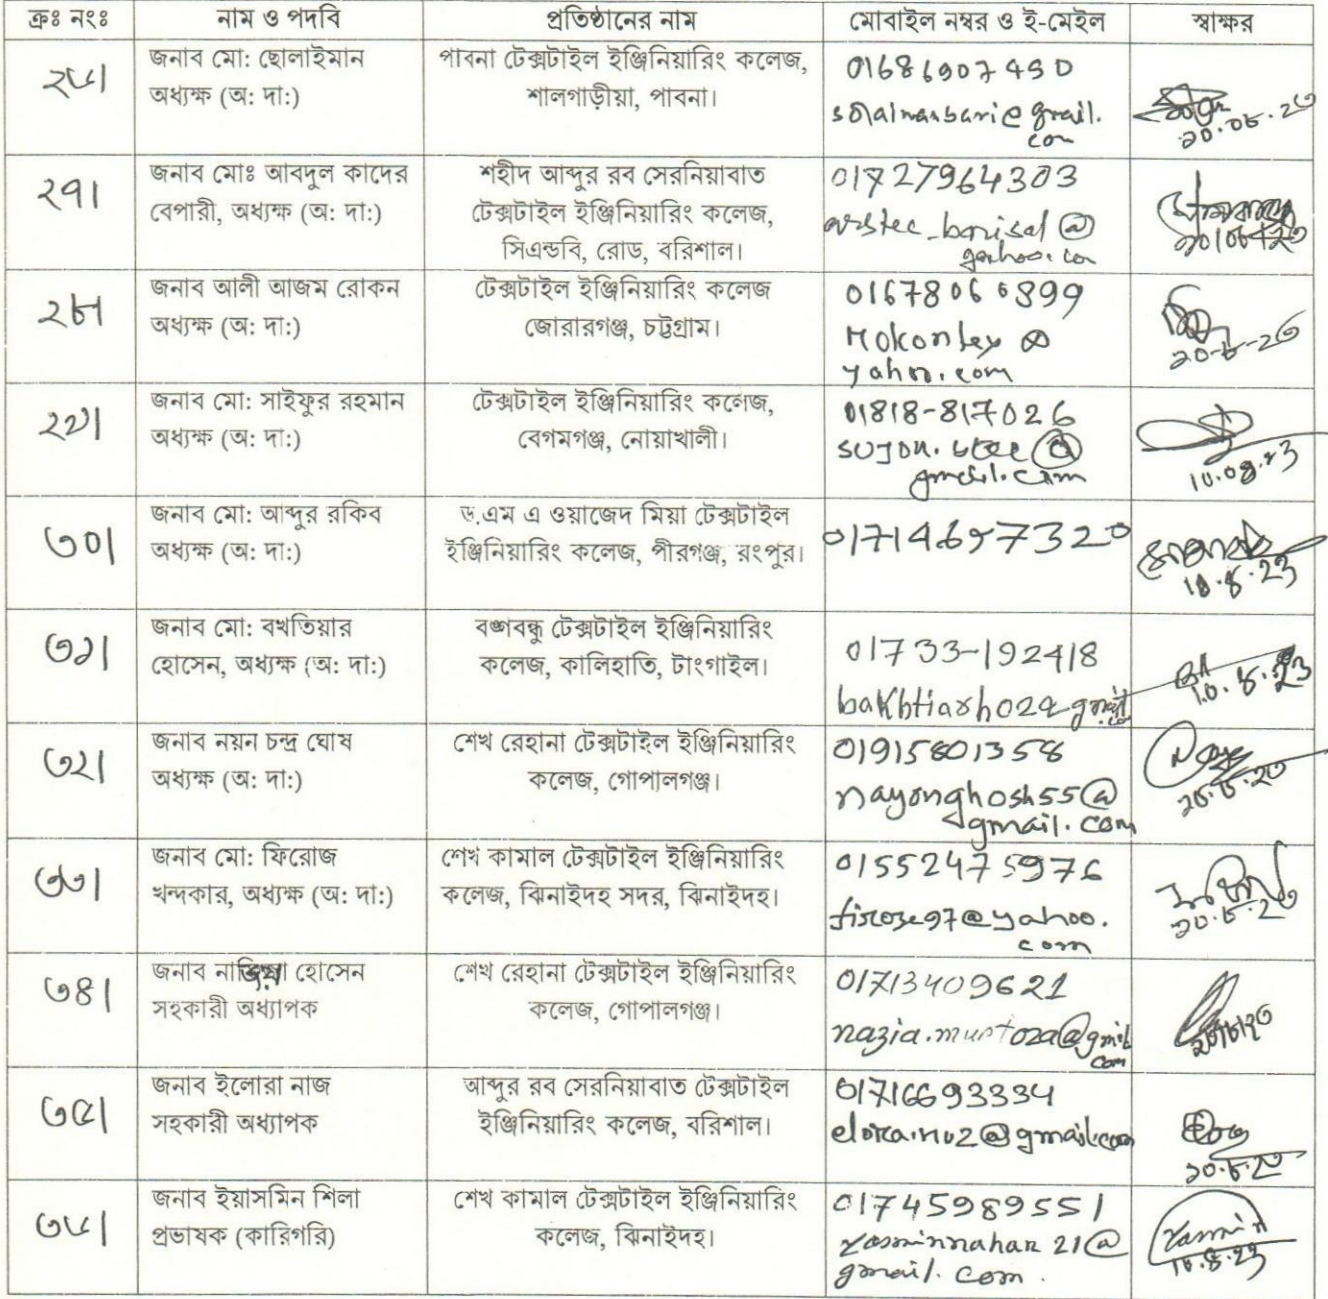 ক্রঃ নংঃ নাম ও পদবি প্রতিষ্ঠানের নাম মোবাইল নম্বর ও ই-মেইল স্বাক্ষর
২৬। জনাব মো: ছোলাইমান
অধ্যক্ষ (অ: দা:)
পাবনা টেক্সটাইল ইঞ্জিনিয়ারিং কলেজ,
শালগাড়ীয়া, পাবনা।
01686907490
@gmail.
com
২৭। জনাব মোঃ আবদুল কাদের
বেপারী, অধ্যক্ষ (অ: দা:)
শহীদ আব্দুর রব সেরনিয়াবাত
টেক্সটাইল ইঞ্জিনিয়ারিং কলেজ,
সিএন্ডবি, রোড, বরিশাল।
01727964303
২৮। জনাব আলী আজম রোকন
অধ্যক্ষ (অ: দা:)
টেক্সটাইল ইঞ্জিনিয়ারিং কলেজ
জোরারগঞ্জ, চট্টগ্রাম।
01678060899
yahoo.com
২৯। জনাব মো: সাইফুর রহমান
অধ্যক্ষ (অ: দা:)
টেক্সটাইল ইঞ্জিনিয়ারিং কলেজ,
বেগমগঞ্জ, নোয়াখালী।
01818-817026
gmail.com
10.08.23
৩০। জনাব মো: আব্দুর রকিব
অধ্যক্ষ (অ: দা:)
ড.এম এ ওয়াজেদ মিয়া টেক্সটাইল
ইঞ্জিনিয়ারিং কলেজ, পীরগঞ্জ, রংপুর।
01714697320
10.8.23
৩১। জনাব মো: বখতিয়ার
হোসেন, অধ্যক্ষ (অ: দা:)
বঙ্গবন্ধু টেক্সটাইল ইঞ্জিনিয়ারিং
কলেজ, কালিহাতি, টাংগাইল।
01733-192418
10.8.23
৩২। জনাব নয়ন চন্দ্র ঘোষ
অধ্যক্ষ (অ: দা:)
শেখ রেহানা টেক্সটাইল ইঞ্জিনিয়ারিং
কলেজ, গোপালগঞ্জ।
01915801358
nayonghosh55@
gmail.com
৩৩। জনাব মো: ফিরোজ
খন্দকার, অধ্যক্ষ (অ: দা:)
শেখ কামাল টেক্সটাইল ইঞ্জিনিয়ারিং
কলেজ, ঝিনাইদহ সদর, ঝিনাইদহ।
01552475976
firoze97@yahoo.
com
৩৪। জনাব নাজিয়া হোসেন
সহকারী অধ্যাপক
শেখ রেহানা টেক্সটাইল ইঞ্জিনিয়ারিং
কলেজ, গোপালগঞ্জ।
01713409621
nazia.murtoza@gmil
com
৩৫। জনাব ইলোরা নাজ
সহকারী অধ্যাপক
আব্দুর রব সেরনিয়াবাত টেক্সটাইল
ইঞ্জিনিয়ারিং কলেজ, বরিশাল।
01716693334
৩৬। জনাব ইয়াসমিন শিলা
প্রভাষক (কারিগরি)
শেখ কামাল টেক্সটাইল ইঞ্জিনিয়ারিং
কলেজ, ঝিনাইদহ।
01745989551
yasminnahar21@
gmail.com.
Yasmin
10.8.23